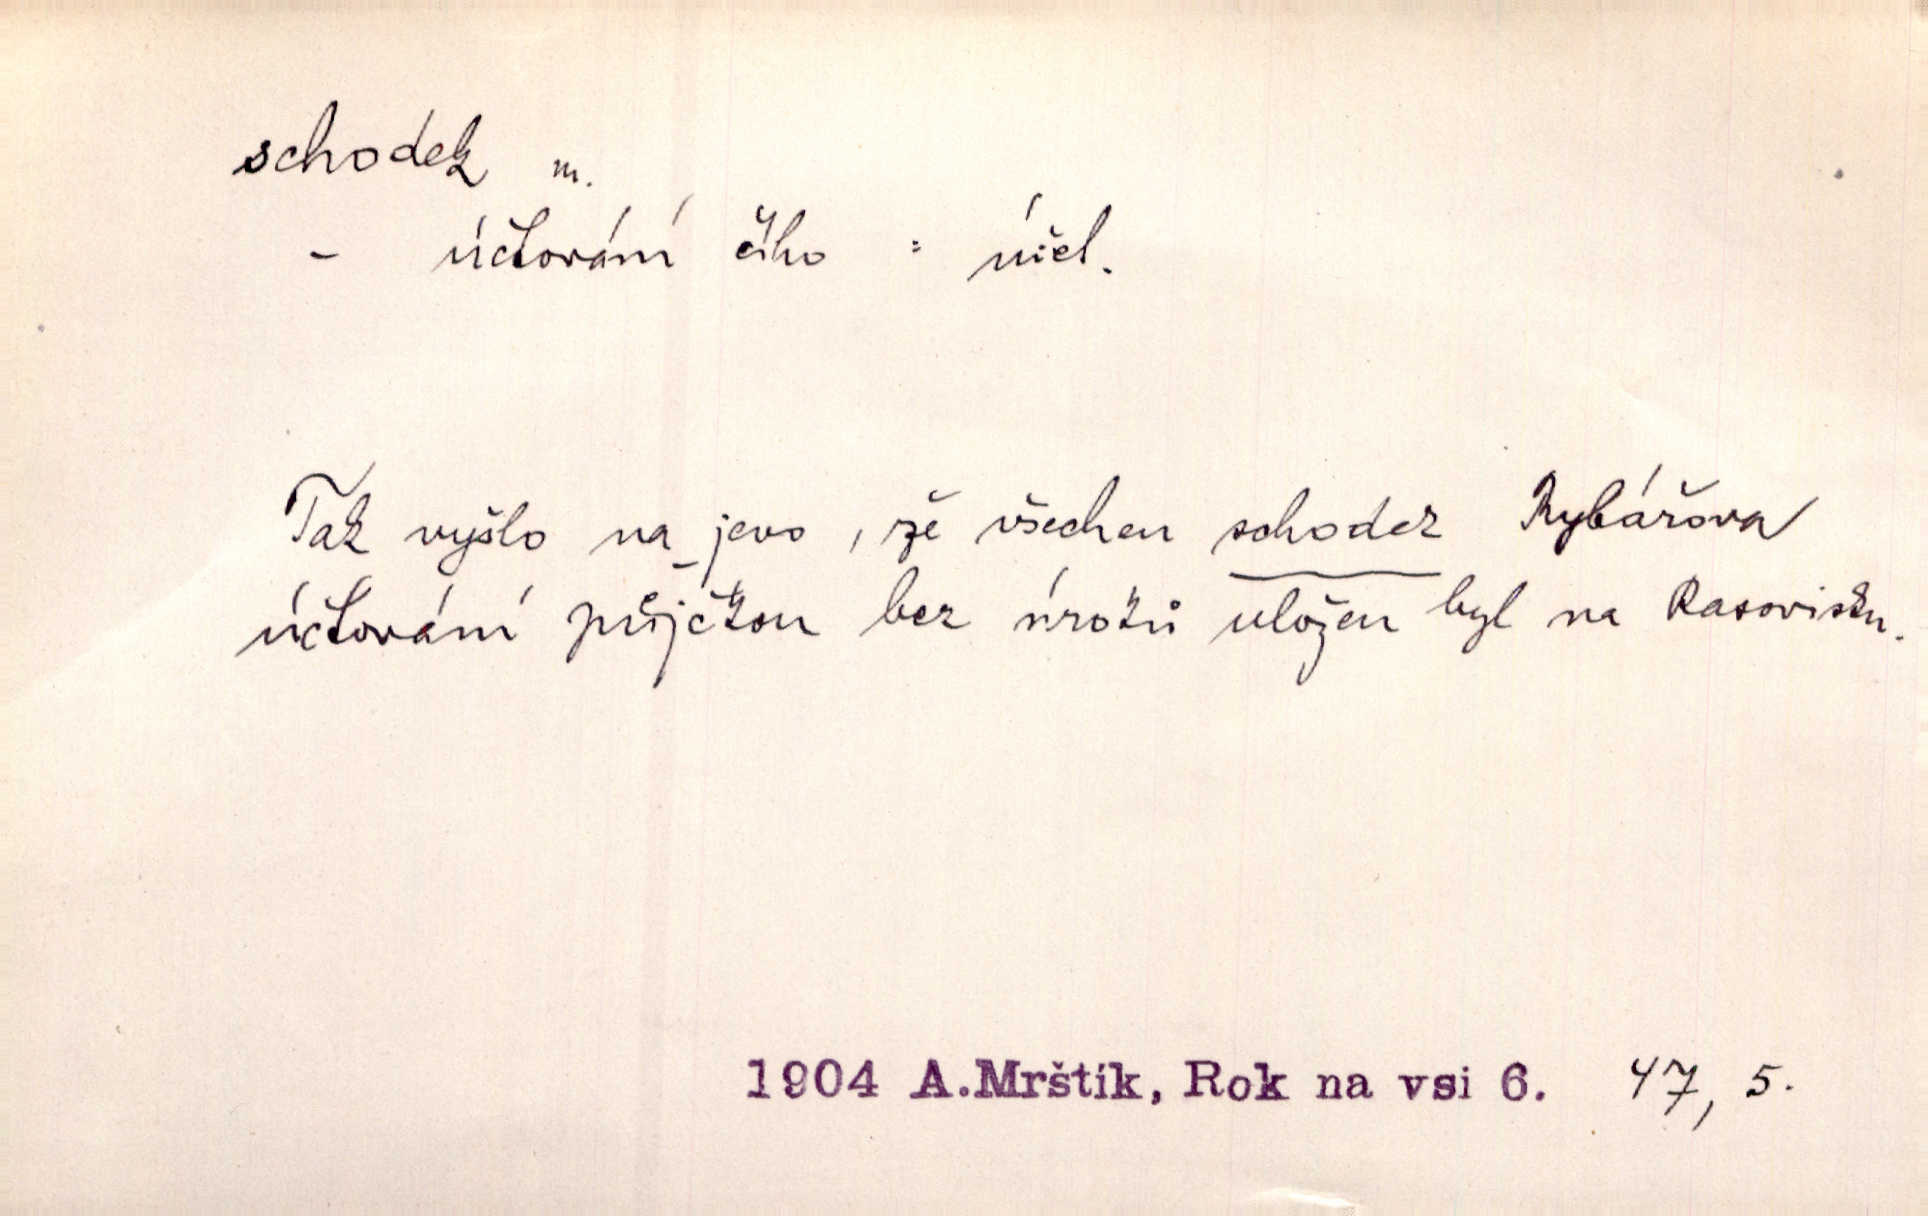 schodek m.
- účtování čího = účel.
Tak vyšlo na jevo, že všechen schodek Rybářova
účtování půjčkou bez úroků uložen byl na Rasovisku.
1904 A.Mrštík, Rok na vsi 6. 47, 5.